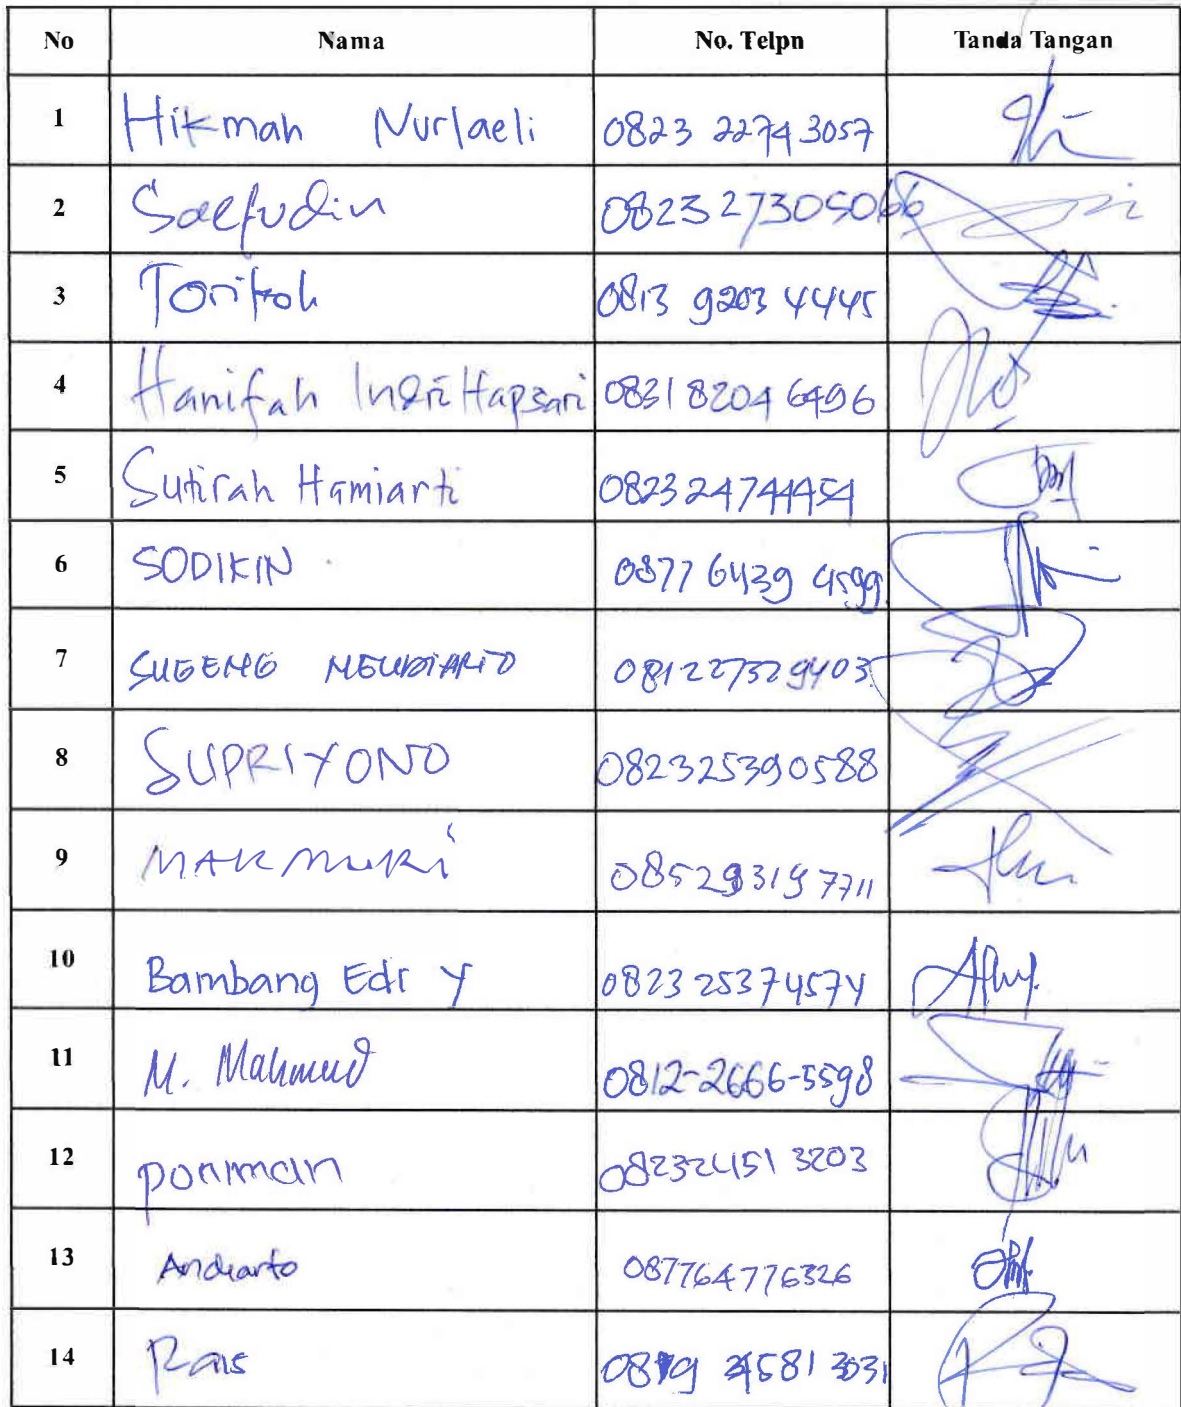 No Nama No. Telpn Tanda Tangan
1 Hikmah Nurlaeli 0823 2274 3057
2 Saefudin 0823 27305066
3 Torikoh 0813 9203 4445
4 Hanifah Indri Hapsari 0831 8204 6496
5 Sutirah Hamiarti 082324744454
6 SODIKIN 0877 6439 4599
7 SUGENG 081227329403
8 SUPRIYONO 082325390588
9 MAKMURI 085293197711
10 Bambang Edi Y 0823 25374574
11 M. Mahmud 0812-2666-5598
12 ponman 08232451 3203
13 Andiarto 087764776326
14 Rais